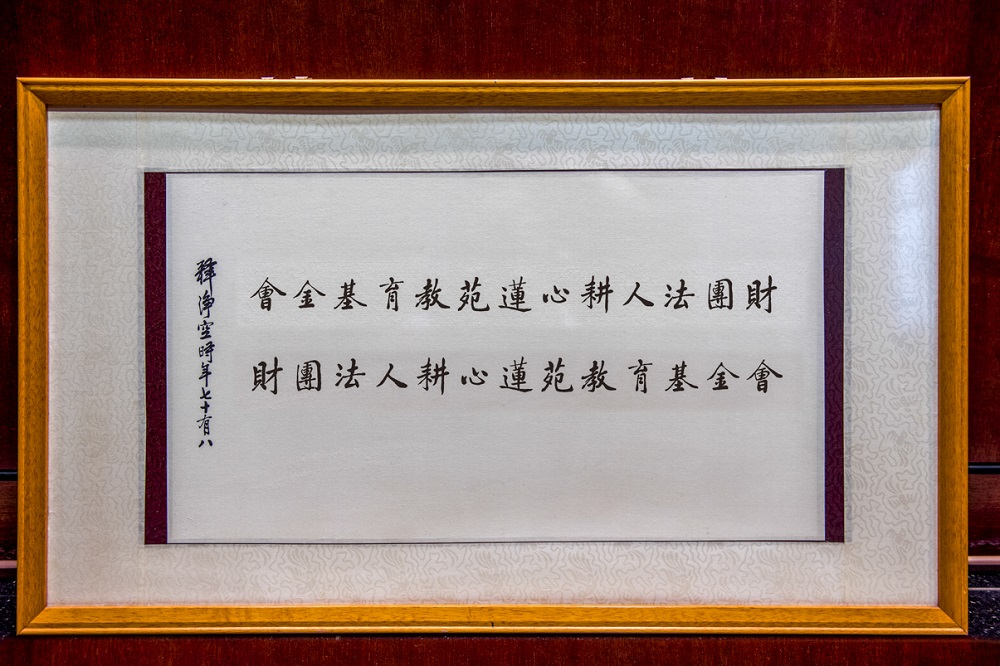 財團法人耕心蓮苑教育基金會
財團法人耕心蓮苑教育基金會
釋淨空時年七十有八